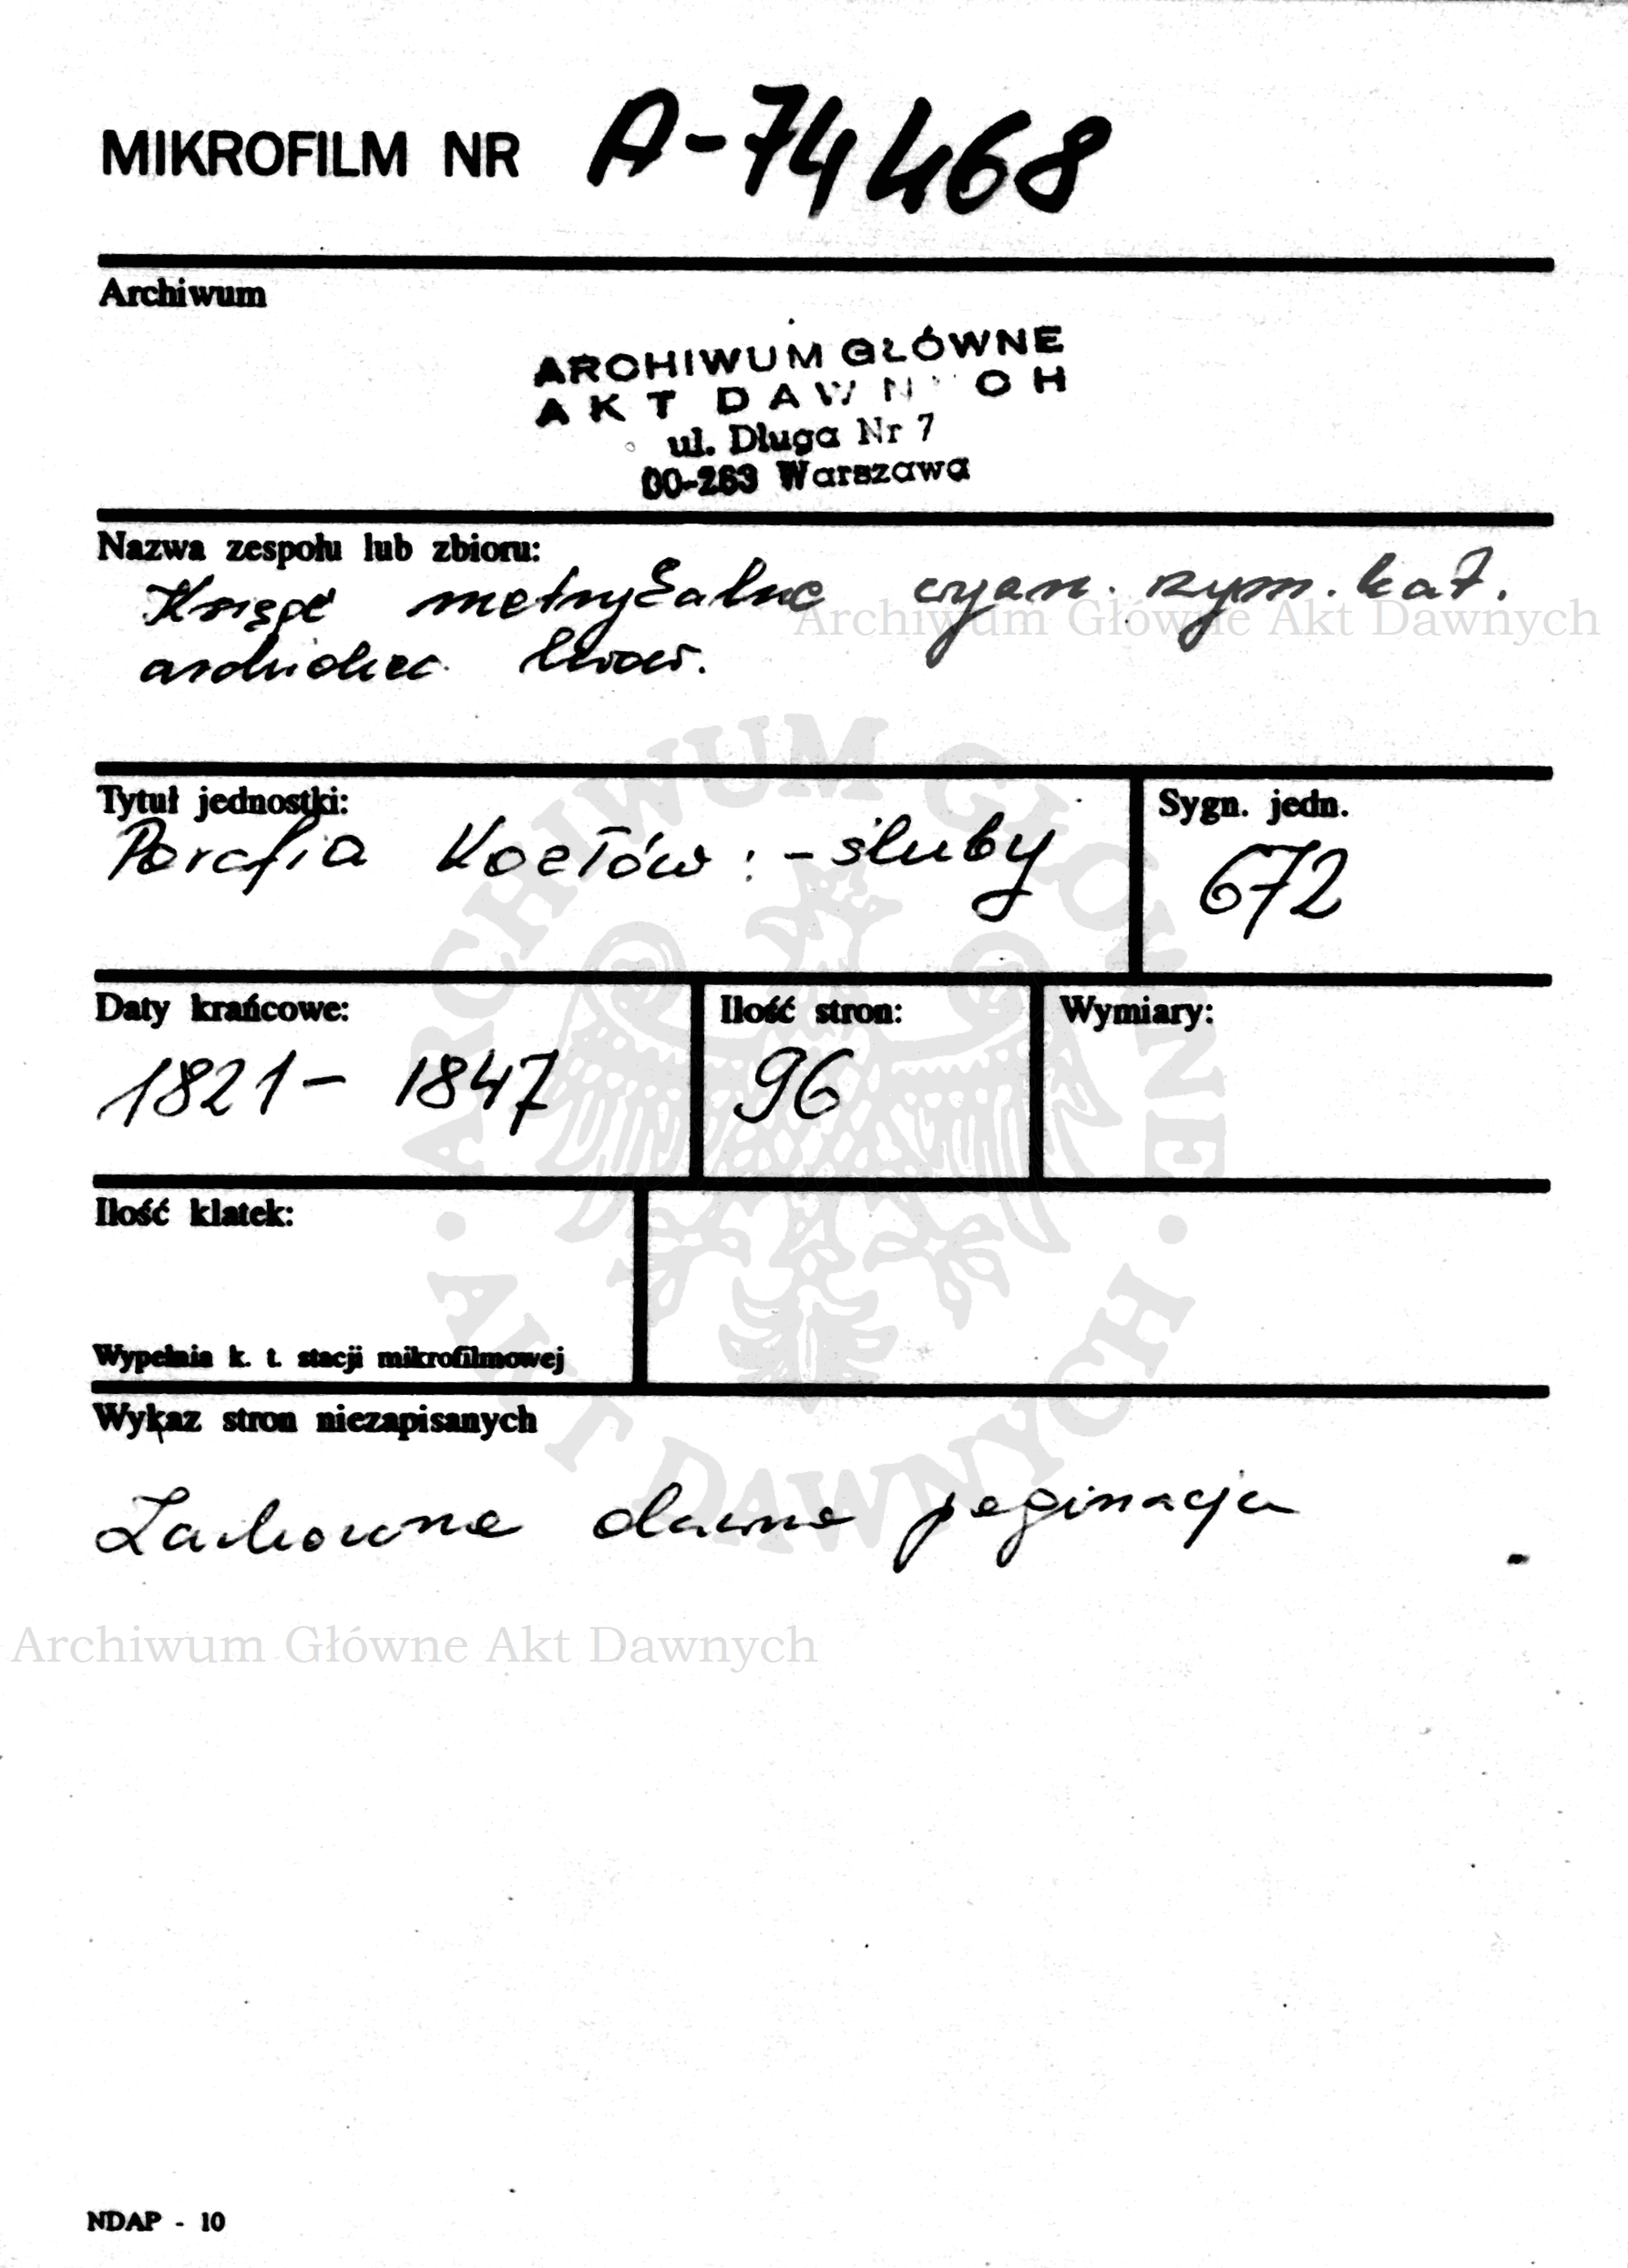 MIKROFILM NR A-74468
Archiwum
ARCHIWUM GŁÓWNE
AKT DAWNYCH
ul. Długa Nr 7
00-263 Warszawa
Nazwa zespołu lub zbioru:
Księgi metrykalne wyzn. rzym. kat.
Archiwum Główne Akt Dawnych
archidiec. lwow.
Tytuł jednostki:
Parafia Kozłów: - śluby
Sygn. jedn.
672
Daty krańcowe:
1821 - 1847
Ilość stron:
96
Wymiary:
Ilość klatek:
Wypełnia k. t. stacji mikrofilmowej
Wykaz stron niezapisanych
Zachowana dawna paginacja
ARCHIWUM GŁÓWNE · AKT DAWNYCH ·
Archiwum Główne Akt Dawnych
NDAP - 10